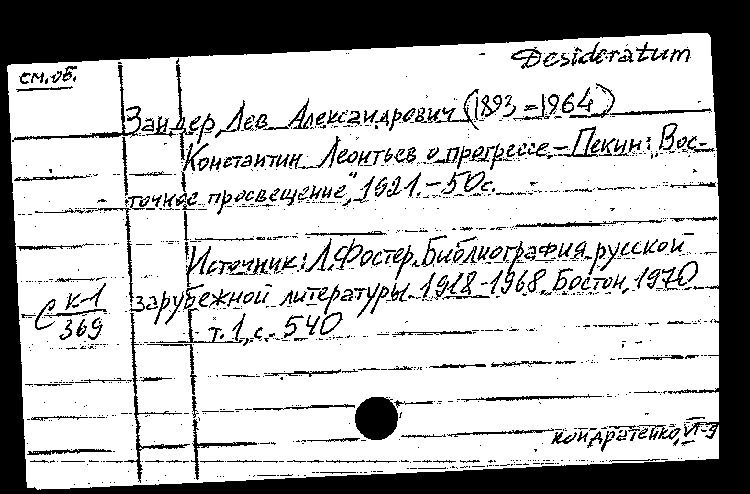 Desideratum
см.об.
Зандер, Лев Александрович (1893-1964)
Константин Леонтьев о прогрессе.- Пекин: „Вос-
точное просвещение", 1921.-50с.
Источник: Л.Фостер. Библиография русской
зарубежной литературы. 1918-1968. Бостон, 1970
т.1, с. 540
С к-1
369
Кондратенко, VI-9